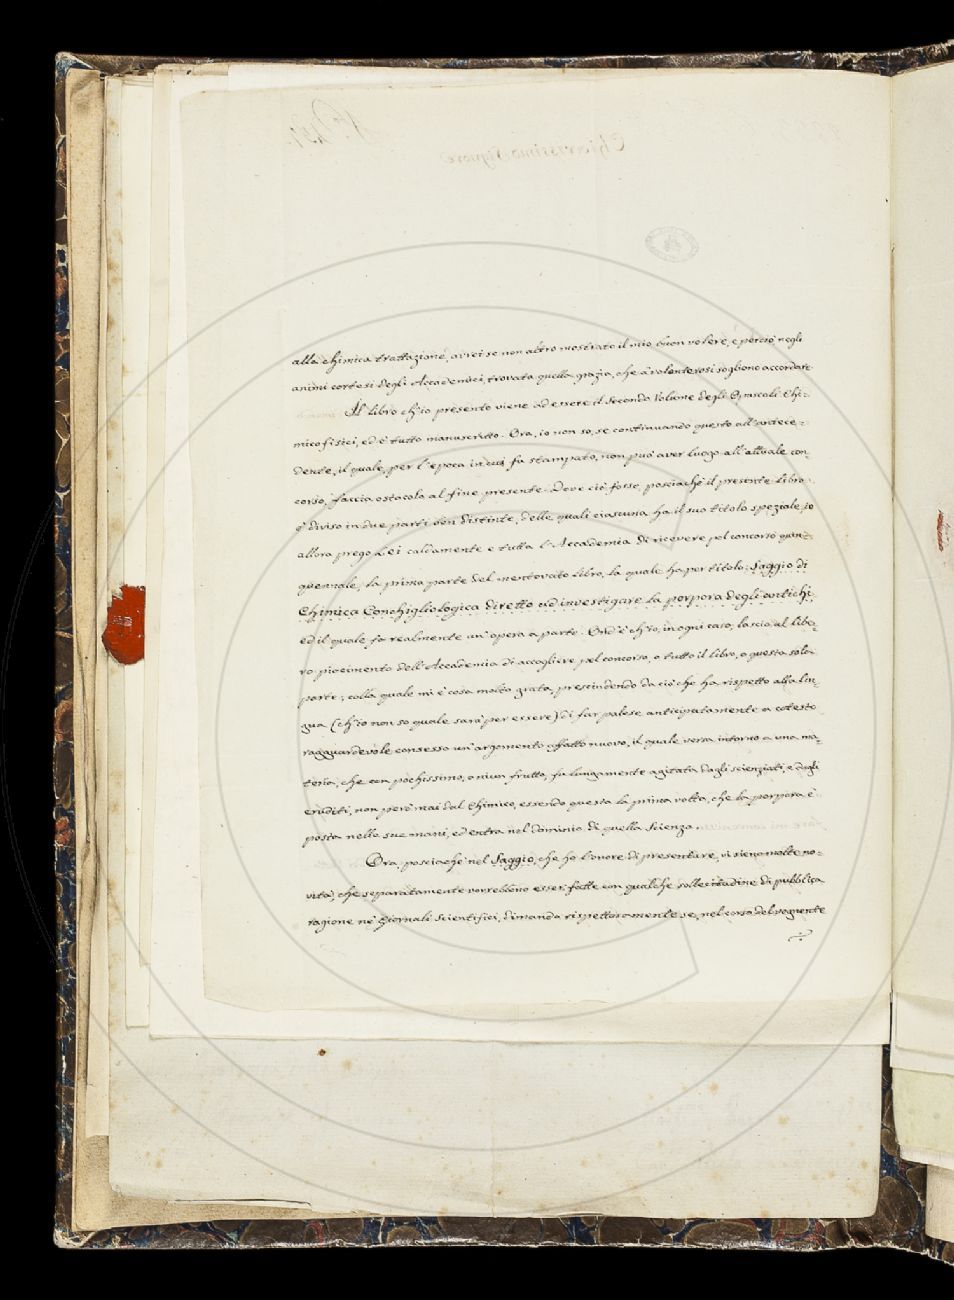 alla chimica trattazione, avrei se non altro mostrato il mio buon volere, e perciò negli
animi cortesi degli Accademici, trovata quella grazia, che a' volenterosi sogliono accordare.
Il libro ch'io presento viene ad essere il secondo Volume degli Opuscoli Chi-
mico fisici, ed è tutto manuscritto. Ora, io non so, se continuando questo all'antece-
dente, il quale, per l'epoca in cui fu stampato, non può aver luogo all'attuale con-
corso, faccia ostacolo al fine presente. Dove ciò fosse, posciachè il presente Libro
è diviso in due parti ben distinte, delle quali ciascuna ha il suo titolo speziale, io
allora prego Lei caldamente e tutta l'Accademia di ricevere pel concorso quin-
quennale, la prima parte del mentovato libro, la quale ha per titolo: Saggio di
Chimica Conchigliologica diretto ad investigare la porpora degli antichi
ed il quale fa realmente un'opera a parte. Ond'è ch'io, in ogni caso, lascio al libe-
ro piacimento dell'Accademia di accogliere pel concorso, o tutto il libro, o questa sola
parte; colla quale mi è cosa molto grata, prescindendo da ciò che ha rispetto alla lin-
gua (ch'io non so quale sarà per essere) di far palese anticipatamente a cotesto
ragguardevole consesso un'argomento affatto nuovo, il quale versa intorno a una ma-
teria, che con pochissimo, o niun frutto, fu lungamente agitata dagli scienziati, e dagli
eruditi, non però mai dal Chimico, essendo questa la prima volta, che la porpora è
posta nelle sue mani, ed entra nel dominio di quella Scienza.
Ora, posciachè nel Saggio, che ho l'onore di presentare, vi sieno molte no-
vità, che separatamente vorrebbono esser fatte con qualche sollecitudine di pubblica
ragione ne' Giornali scientifici, dimando rispettosamente se, nel corso del vegnente